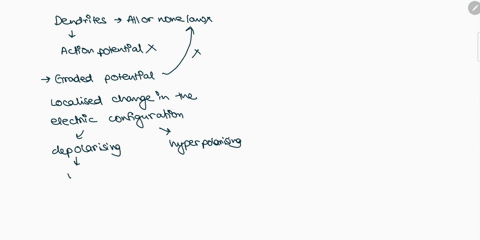 Dendrites → All or none law x
↓
Action potential X
x
→ Graded potential
Localised change in the
electric configuration
depolarising hyperpolarising
↓